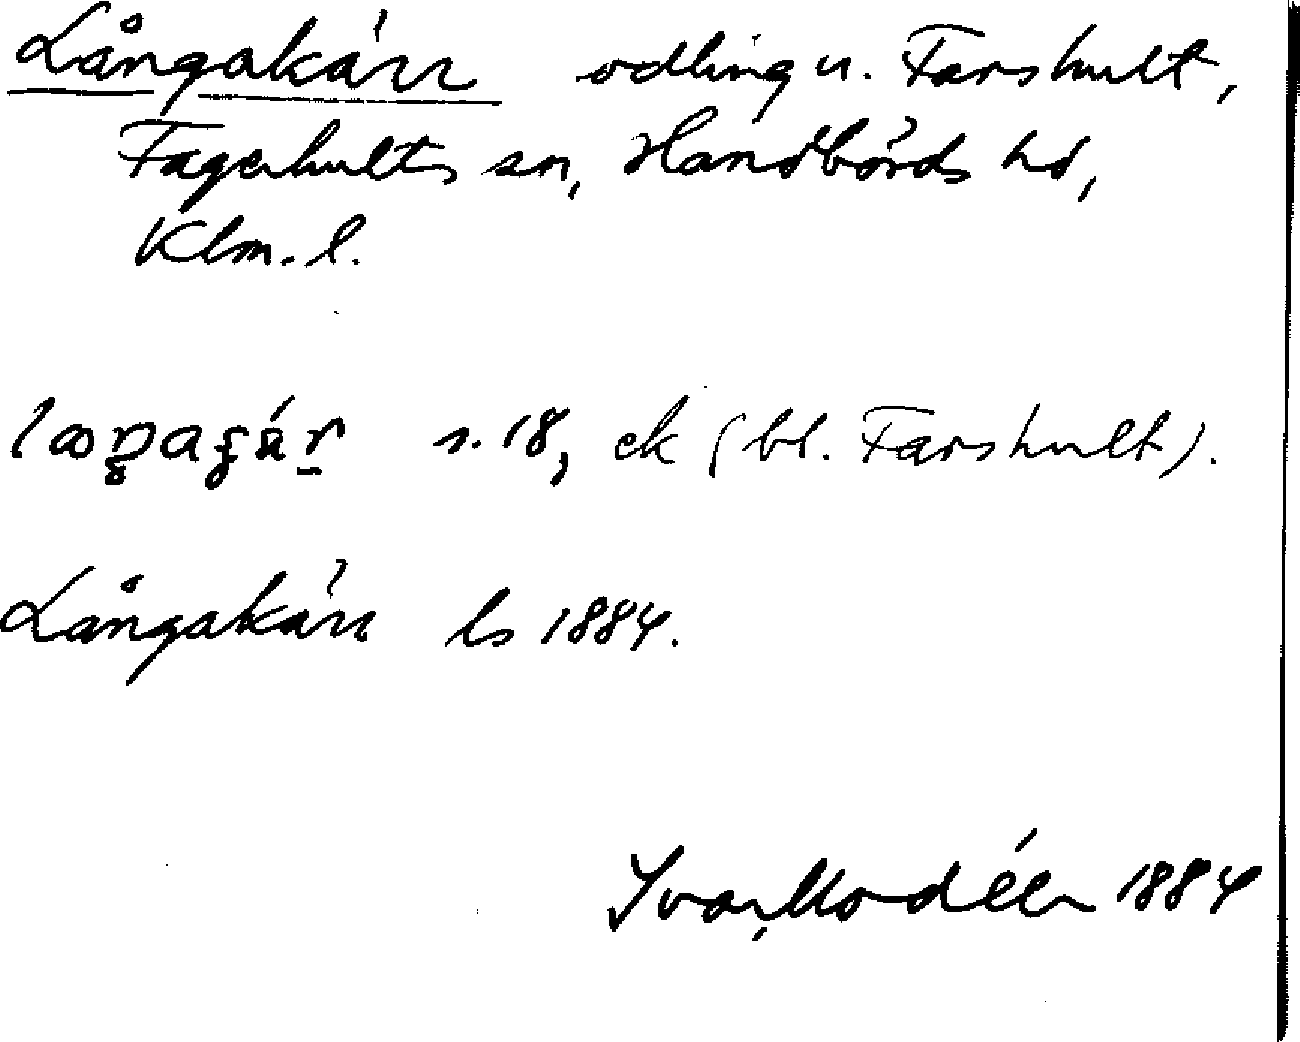 Långakärr odling u. Farshult,
Fagerhults sn, Handbörds hd,
Klm. l.
s. 18, ek (bl. Farshult).
Långakärr ls 1884.
Ivar Modéer 1884